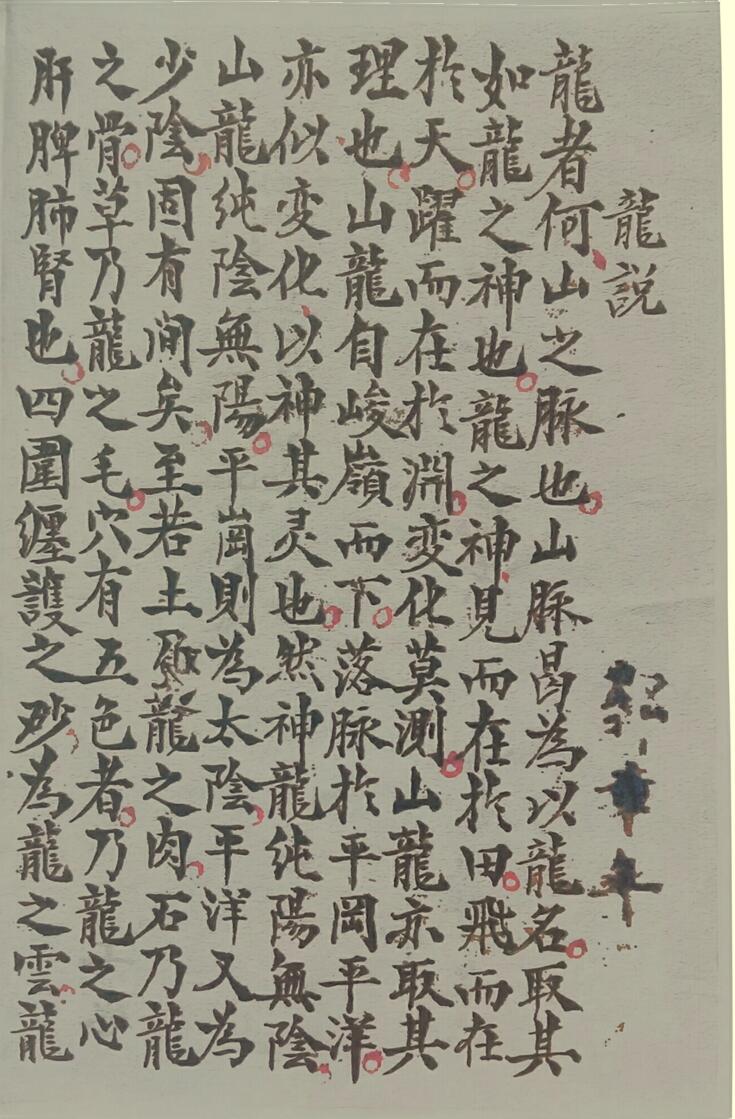 龍説
龍者何山之脉也山脉曷為以龍名取其
如龍之神也龍之神見而在於田飛而在
於天躍而在於淵变化莫測山龍亦取其
理也山龍自峻嶺而下落脉於平岡平洋
亦似变化以神其灵也然神龍纯陽無陰
山龍纯陰無陽平崗則為太陰平洋又為
少陰固有间矣至若土乃龍之肉石乃龍
之骨草乃龍之毛穴有五色者乃龍之心
肝脾肺腎也四圍纏護之砂為龍之雲龍